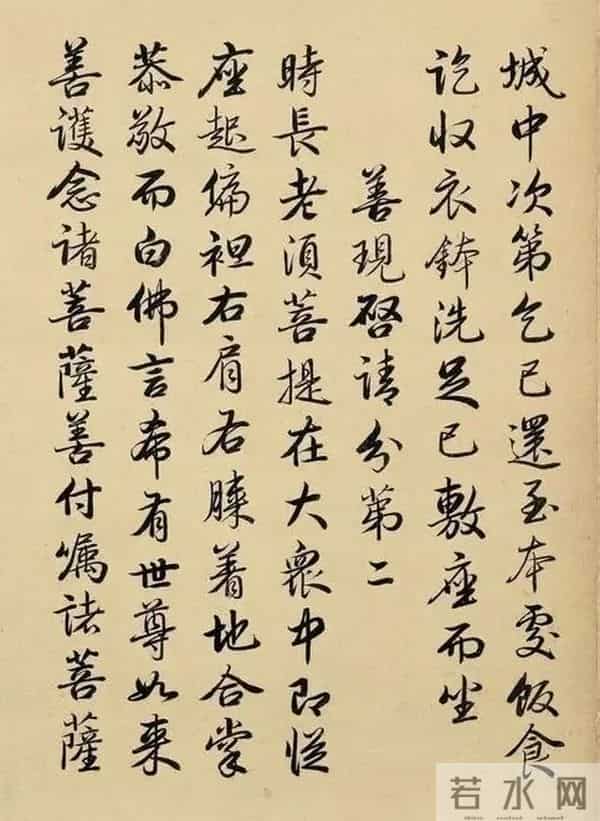 城中次第乞已還至本處飯食
訖收衣鉢洗足已敷座而坐
善現啓請分第二
時長老須菩提在大衆中即從
座起偏袒右肩右膝着地合掌
恭敬而白佛言希有世尊如来
善護念諸菩薩善付囑諸菩薩
若水网